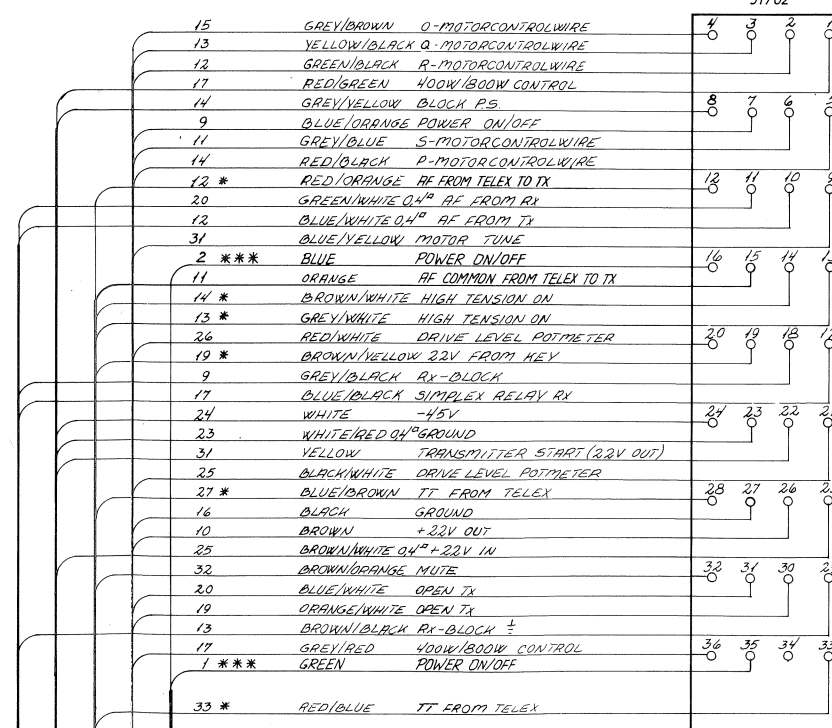 15 GREY/BROWN O-MOTORCONTROLWIRE 4 3 2
13 YELLOW/BLACK Q-MOTORCONTROLWIRE
12 GREEN/BLACK R-MOTORCONTROLWIRE
17 RED/GREEN 400W/800W CONTROL
14 GREY/YELLOW BLOCK P.S. 8 7 6
9 BLUE/ORANGE POWER ON/OFF
11 GREY/BLUE S-MOTORCONTROLWIRE
14 RED/BLACK P-MOTORCONTROLWIRE
12 * RED/ORANGE AF FROM TELEX TO TX 12 11 10
20 GREEN/WHITE 0,4□ AF FROM RX
12 BLUE/WHITE 0,4□ AF FROM TX
31 BLUE/YELLOW MOTOR TUNE
2 *** BLUE POWER ON/OFF 16 15 14
11 ORANGE AF COMMON FROM TELEX TO TX
14 * BROWN/WHITE HIGH TENSION ON
13 * GREY/WHITE HIGH TENSION ON
26 RED/WHITE DRIVE LEVEL POTMETER 20 19 18
19 * BROWN/YELLOW 22V FROM KEY
9 GREY/BLACK RX-BLOCK
17 BLUE/BLACK SIMPLEX RELAY RX
24 WHITE -45V 24 23 22
23 WHITE/RED 0,4□ GROUND
31 YELLOW TRANSMITTER START (22V OUT)
25 BLACK/WHITE DRIVE LEVEL POTMETER
27 * BLUE/BROWN TT FROM TELEX 28 27 26
16 BLACK GROUND
10 BROWN +22V OUT
25 BROWN/WHITE 0,4□ +22V IN
32 BROWN/ORANGE MUTE 32 31 30
20 BLUE/WHITE OPEN TX
19 ORANGE/WHITE OPEN TX
13 BROWN/BLACK RX-BLOCK ⏚
17 GREY/RED 400W/800W CONTROL 36 35 34 33
1 *** GREEN POWER ON/OFF
33 * RED/BLUE TT FROM TELEX